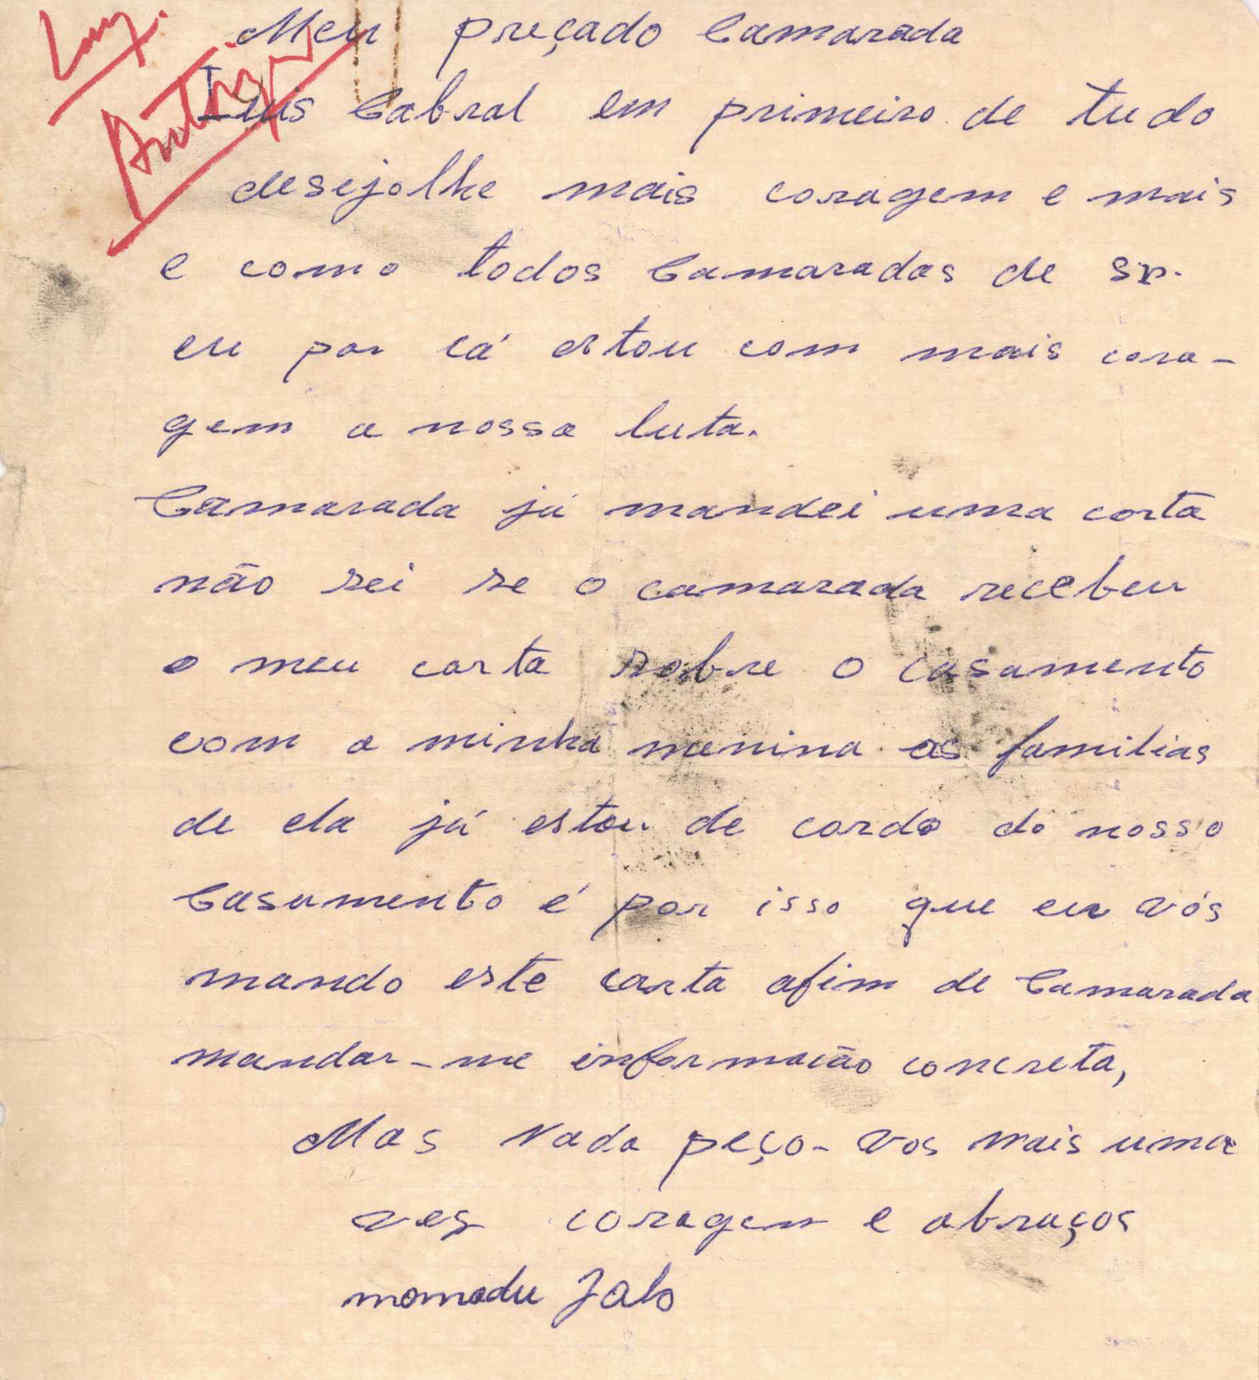 Meu preçado Camarada
Luis Cabral em primeiro de tudo
desejolhe mais coragem e mais
e como todos Camaradas de sr.
eu por cá estou com mais cora-
gem a nossa luta.
Camarada já mandei uma corta
não sei se o camarada recebeu
o meu carta sobre o casamento
com a minha menina as familias
de ela já estou de cordo do nosso
Casamento é por isso que eu vós
mando este carta afim de Camarada
mandar-me informacão concreta,
Mas nada peço-vos mais uma
ves coragem e abraços
momadu Jalo